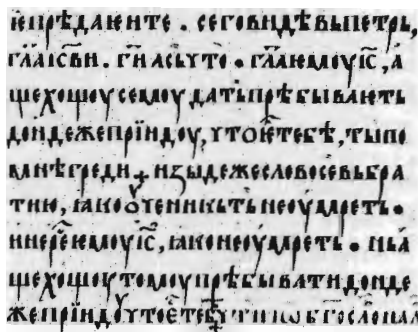 і҆єпрѣдаꙗ҅и те . сегѡвидѣвьпетрь,
гл҃аіс҃ви . ги҃ асьчто • гл҃аѥмоуіс҃, а
щехощоусемоудатьпрѣбываѥть
дондежепріидоу, что ѥ҆ тебѣ, тыпо
мнѣгреди + изыдежесловосевьбра
тию, ꙗкоѹченикьтьнеоумреть •
инере҆ѥмоуіс҃, ꙗконеоумреть • ньа
щехощоутомоупрѣбыватидонде
жепріидоучтоѥ҆тебѣ